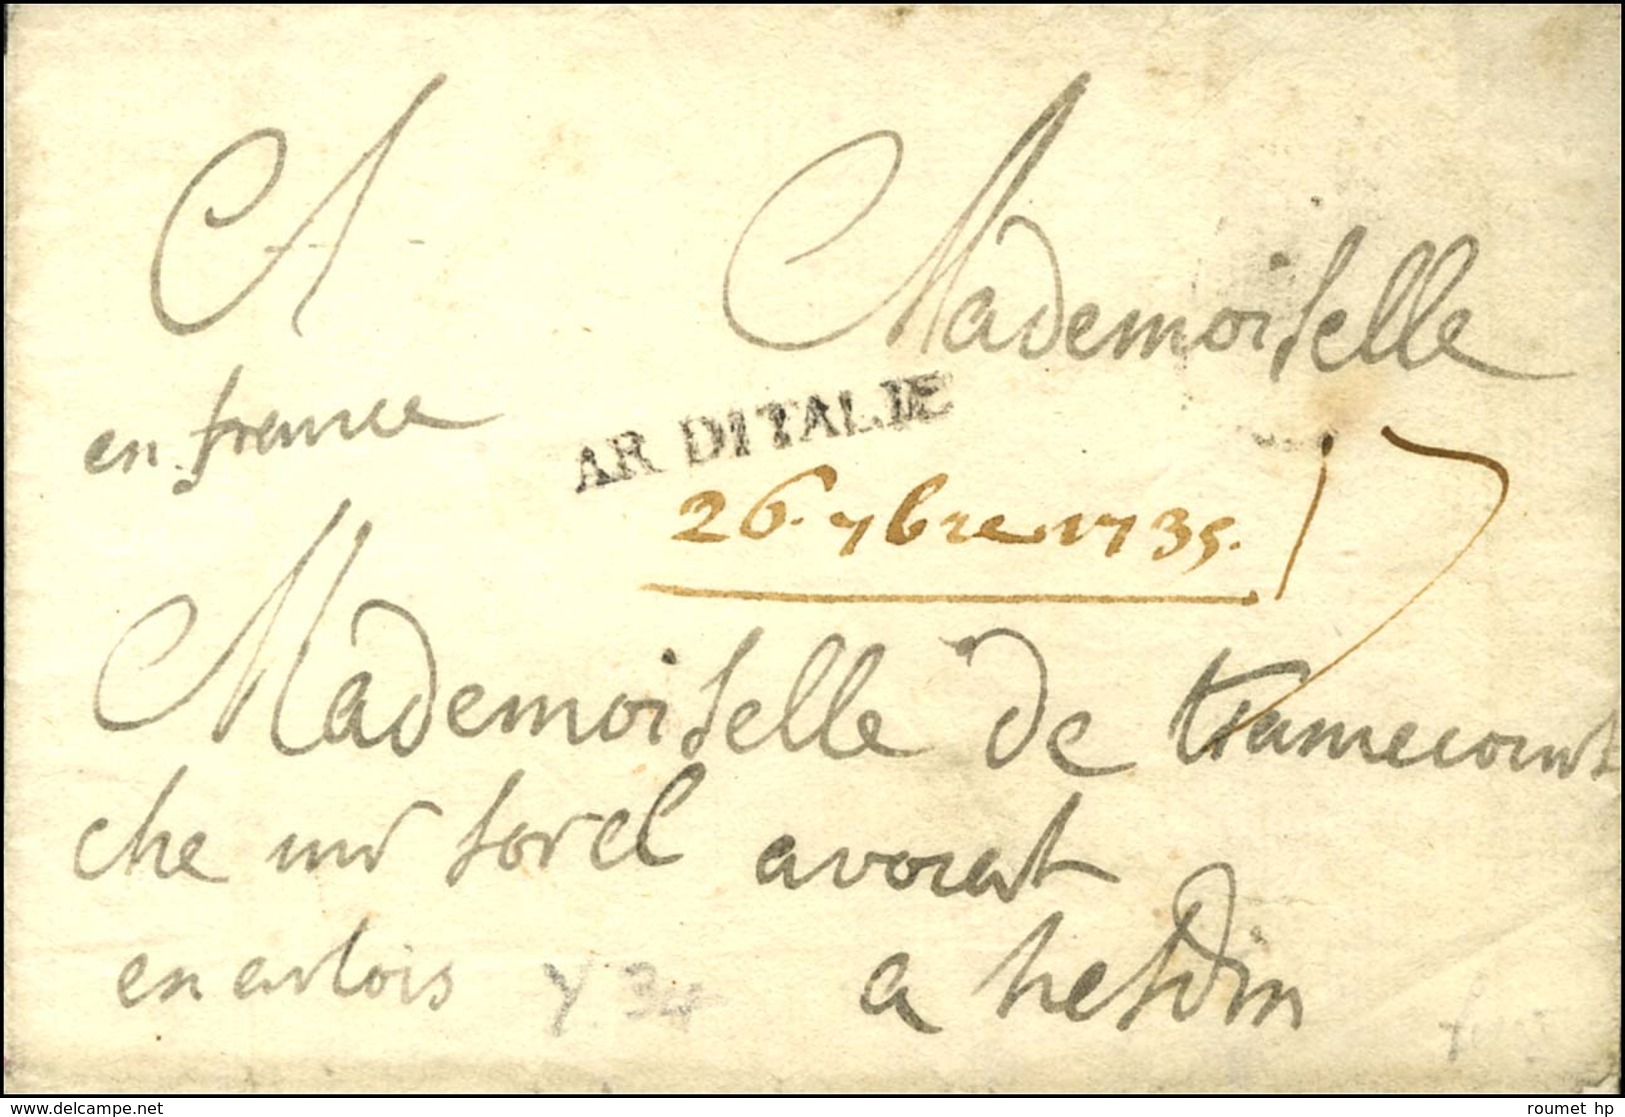 A Mademoiselle
en france
AR DITALIE
26. 7bre 1735.
17
Mademoiselle de tramecourt
che mr sorel avocat
en artois a hesdin
Y. 34
delcampe.net
roumet hp